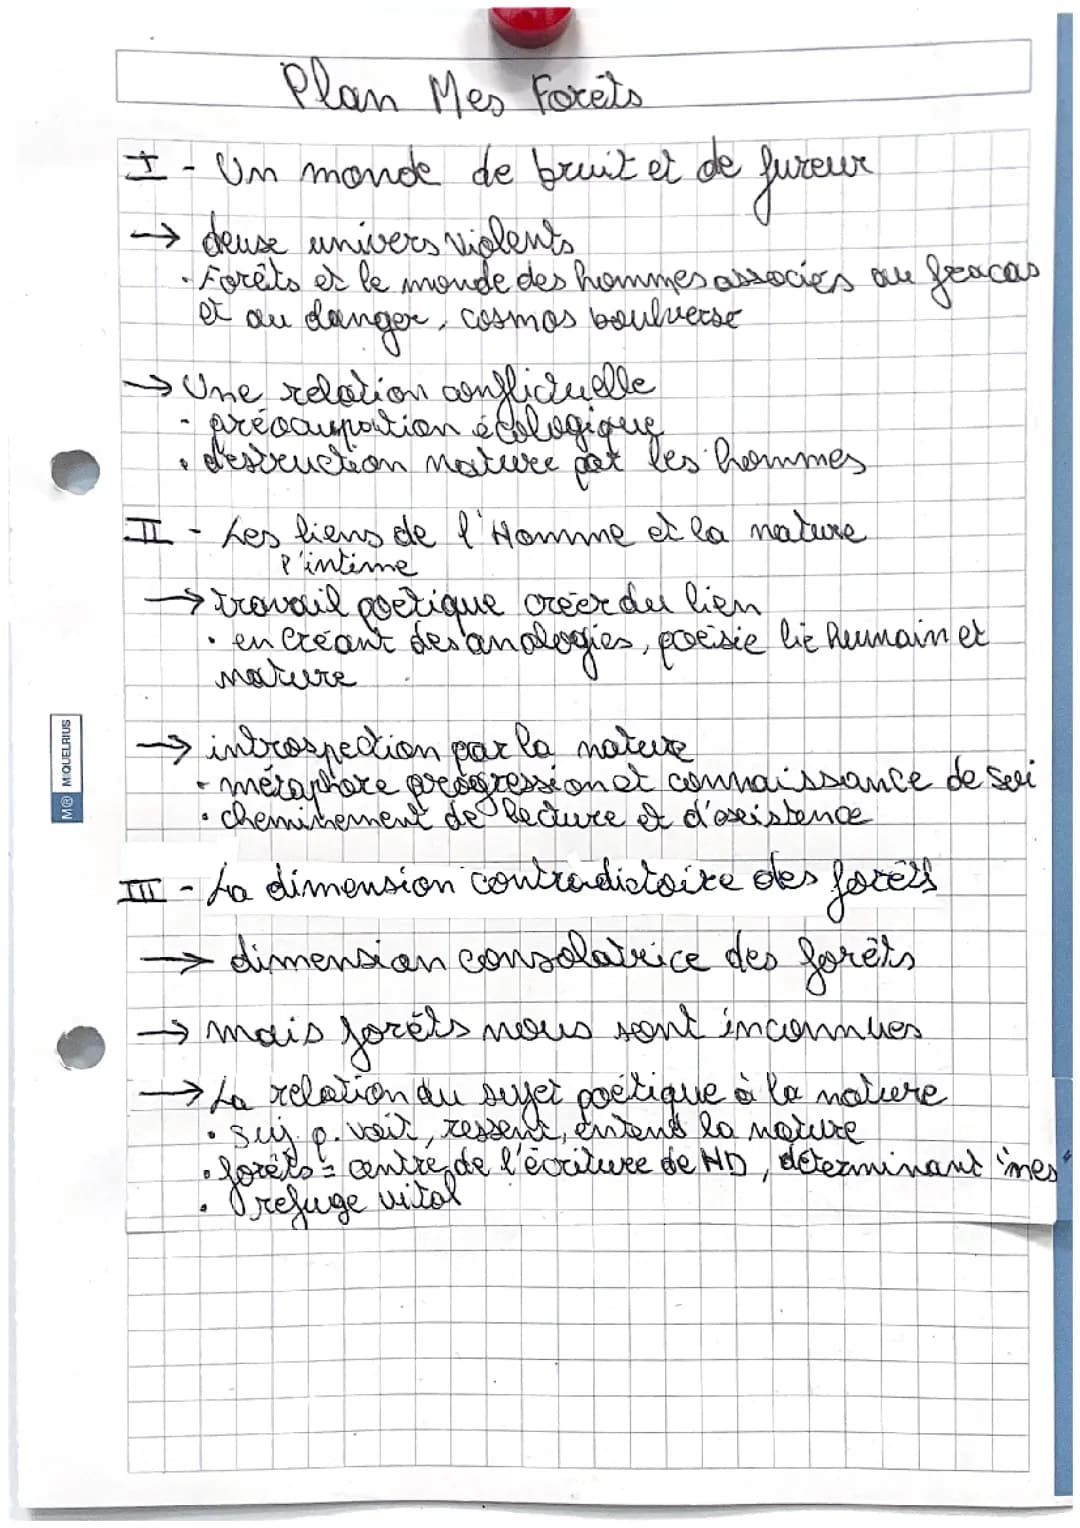 Plan Mes Forêts
I - Un monde de bruit et de fureur
→ deux univers violents
· Forêts et le monde des hommes associés au fracas
et au danger, cosmos boulversé
→ Une relation conflictuelle
- préoccupation écologique
· destruction nature par les hommes
II - Les liens de l'Homme et la nature
l'intime
→ travail poétique créer du lien
· en créant des analogies, poésie lie humain et
nature
→ introspection par la nature
- métaphore progression et connaissance de soi
· cheminement de lecture et d'existence
III - La dimension contradictoire des forêts
→ dimension consolatrice des forêts
→ mais forêts nous sont inconnues
→ La relation du sujet poétique à la nature
· suj. p. voit, ressent, entend la nature
· forêts = centre de l'écriture de HD, déterminant "mes"
· refuge vital
M® MIQUELRIUS